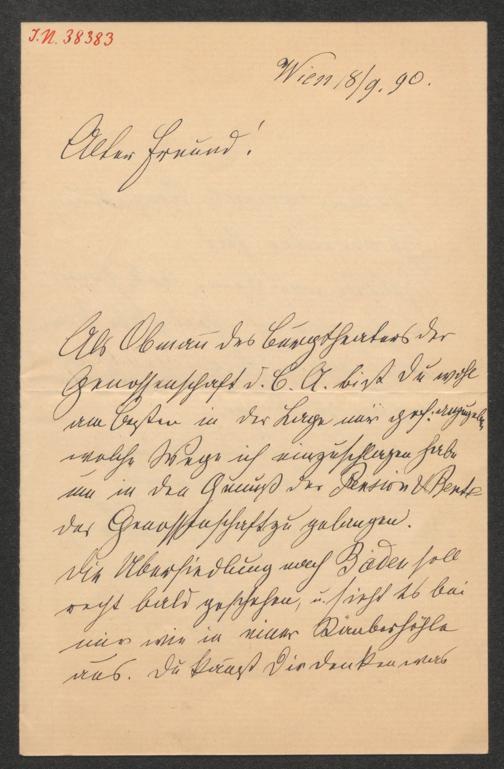 J.N. 38383
Wien 18/9. 90.
Alter Freund!
Als Obmann des Burgtheaters der
Genossenschaft d. B. A. bist Du wohl
am besten in der Lage mir gef. anzugeben,
welche Wege ich einzuschlagen habe
um in den Genuß der Pension
der Genossenschaft zu gelangen.
Die Übersiedlung nach Baden soll
recht bald geschehen, u. sieht es bei
mir wie in einer Räuberhöhle
aus. Du kannst Dir denken was